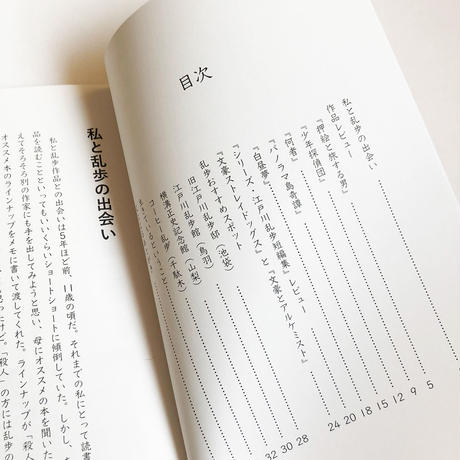 目次
私と乱歩の出会い
作品レビュー
『押絵と旅する男』
『少年探偵団』
『何者』
『パノラマ島奇譚』
『白昼夢』
『シリーズ 江戸川乱歩短編集』レビュー
『文豪ストレイドッグス』と『文豪とアルケミスト』
乱歩おすすめスポット
旧江戸川乱歩邸（池袋）
江戸川乱歩館（鳥羽）
横溝正史記念館（山梨）
コーヒー乱歩（千駄木）
5
9
12
15
18
20
24
28
30
32
私と乱歩の出会い
私と乱歩作品との出会いは5年ほど前、11歳の頃だ。それまでの私にとって読書
品を読むことといってもいいくらいショートショートに傾倒していた。しかし、
えてそろそろ別の作家にも手を出してみようと思い、母にオススメの本を聞いた
オススメ本のラインナップをメモに書いて渡してくれた。ラインナップが「殺人
「殺人」の方には乱歩の